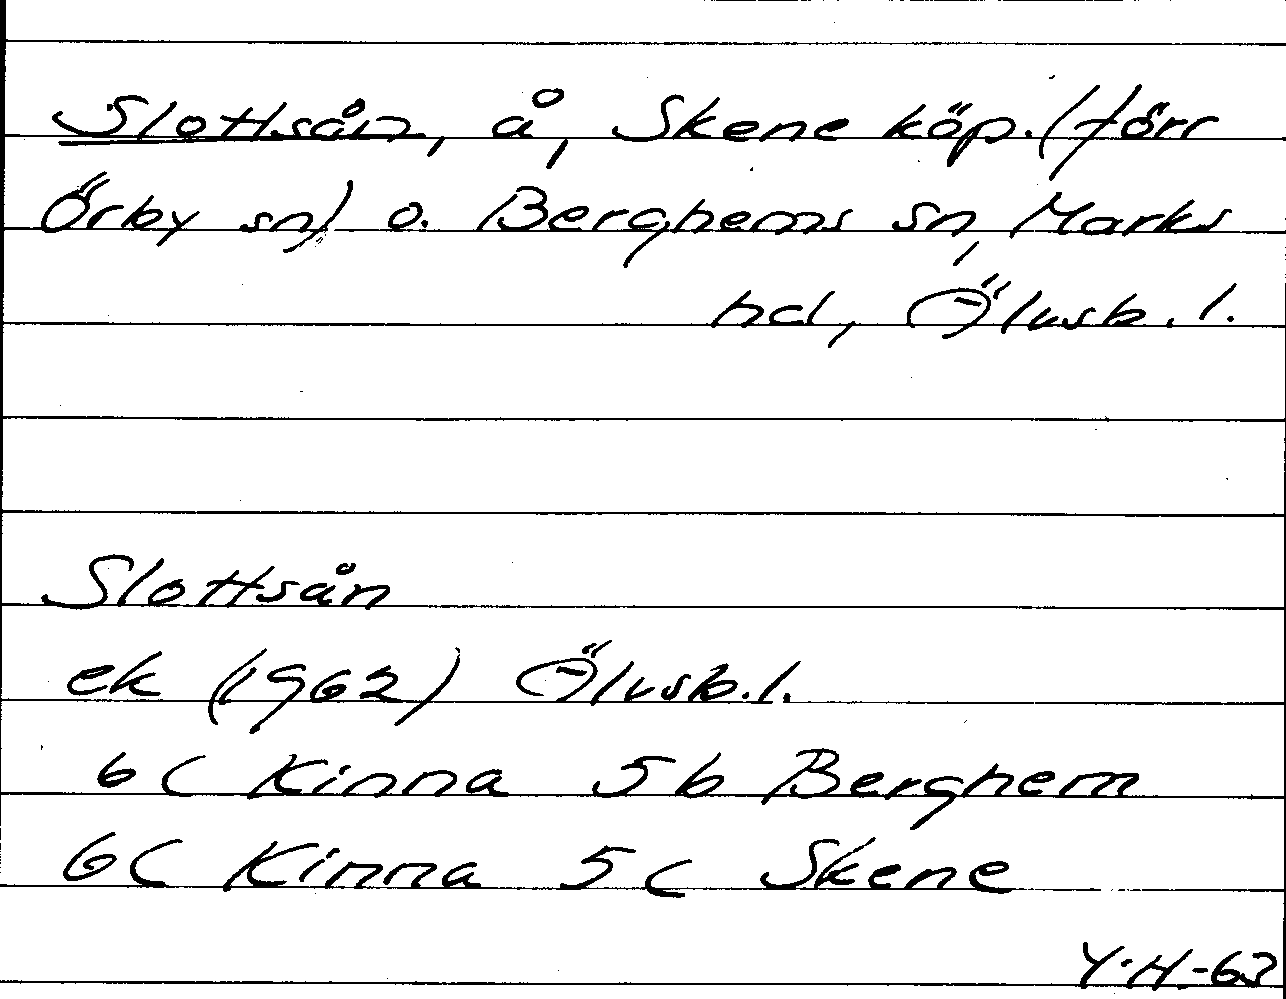 Slottsån, å, Skene köp. (förr
Örby sn) o. Berghems sn, Marks
hd, Älvsb. l.
Slottsån
ek (1962) Älvsb. l.
6C Kinna 5b Berghem
6C Kinna 5c Skene
Y.H.-63